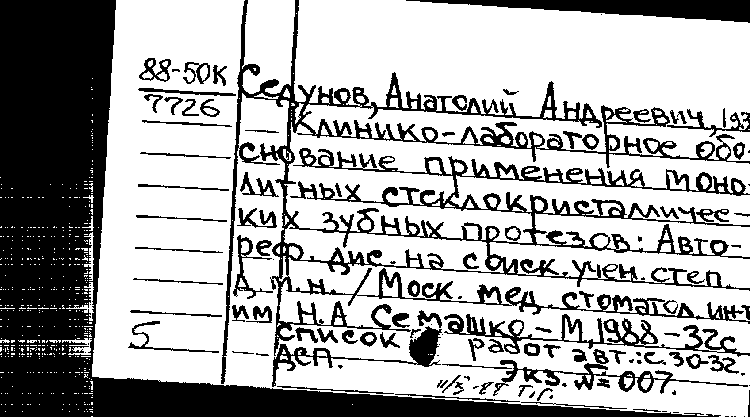 88-50К
7726
Седунов, Анатолий Андреевич, 193
Клинико-лабораторное обо-
снование применения моно-
литных стеклокристалличес-
ких зубных протезов: Авто-
реф. дис. на соиск. учен. степ.
д. м. н. / Моск. мед. стоматол. ин-т
им. Н.А. Семашко. - М, 1988. - 32с.
5
список работ авт.: с. 30-32.
ДСП. Экз. № 007.